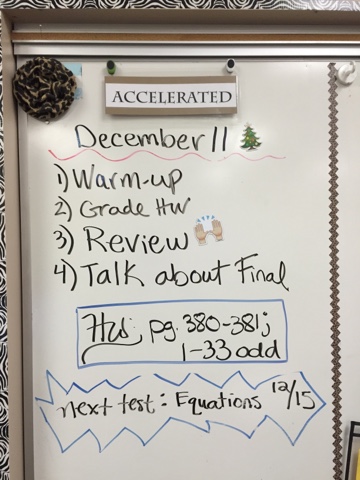 ACCELERATED
December 11
1) Warm-up
2) Grade HW
3) Review
4) Talk about Final
HW: pg. 380-381;
1-33 odd
next test: Equations 12/15